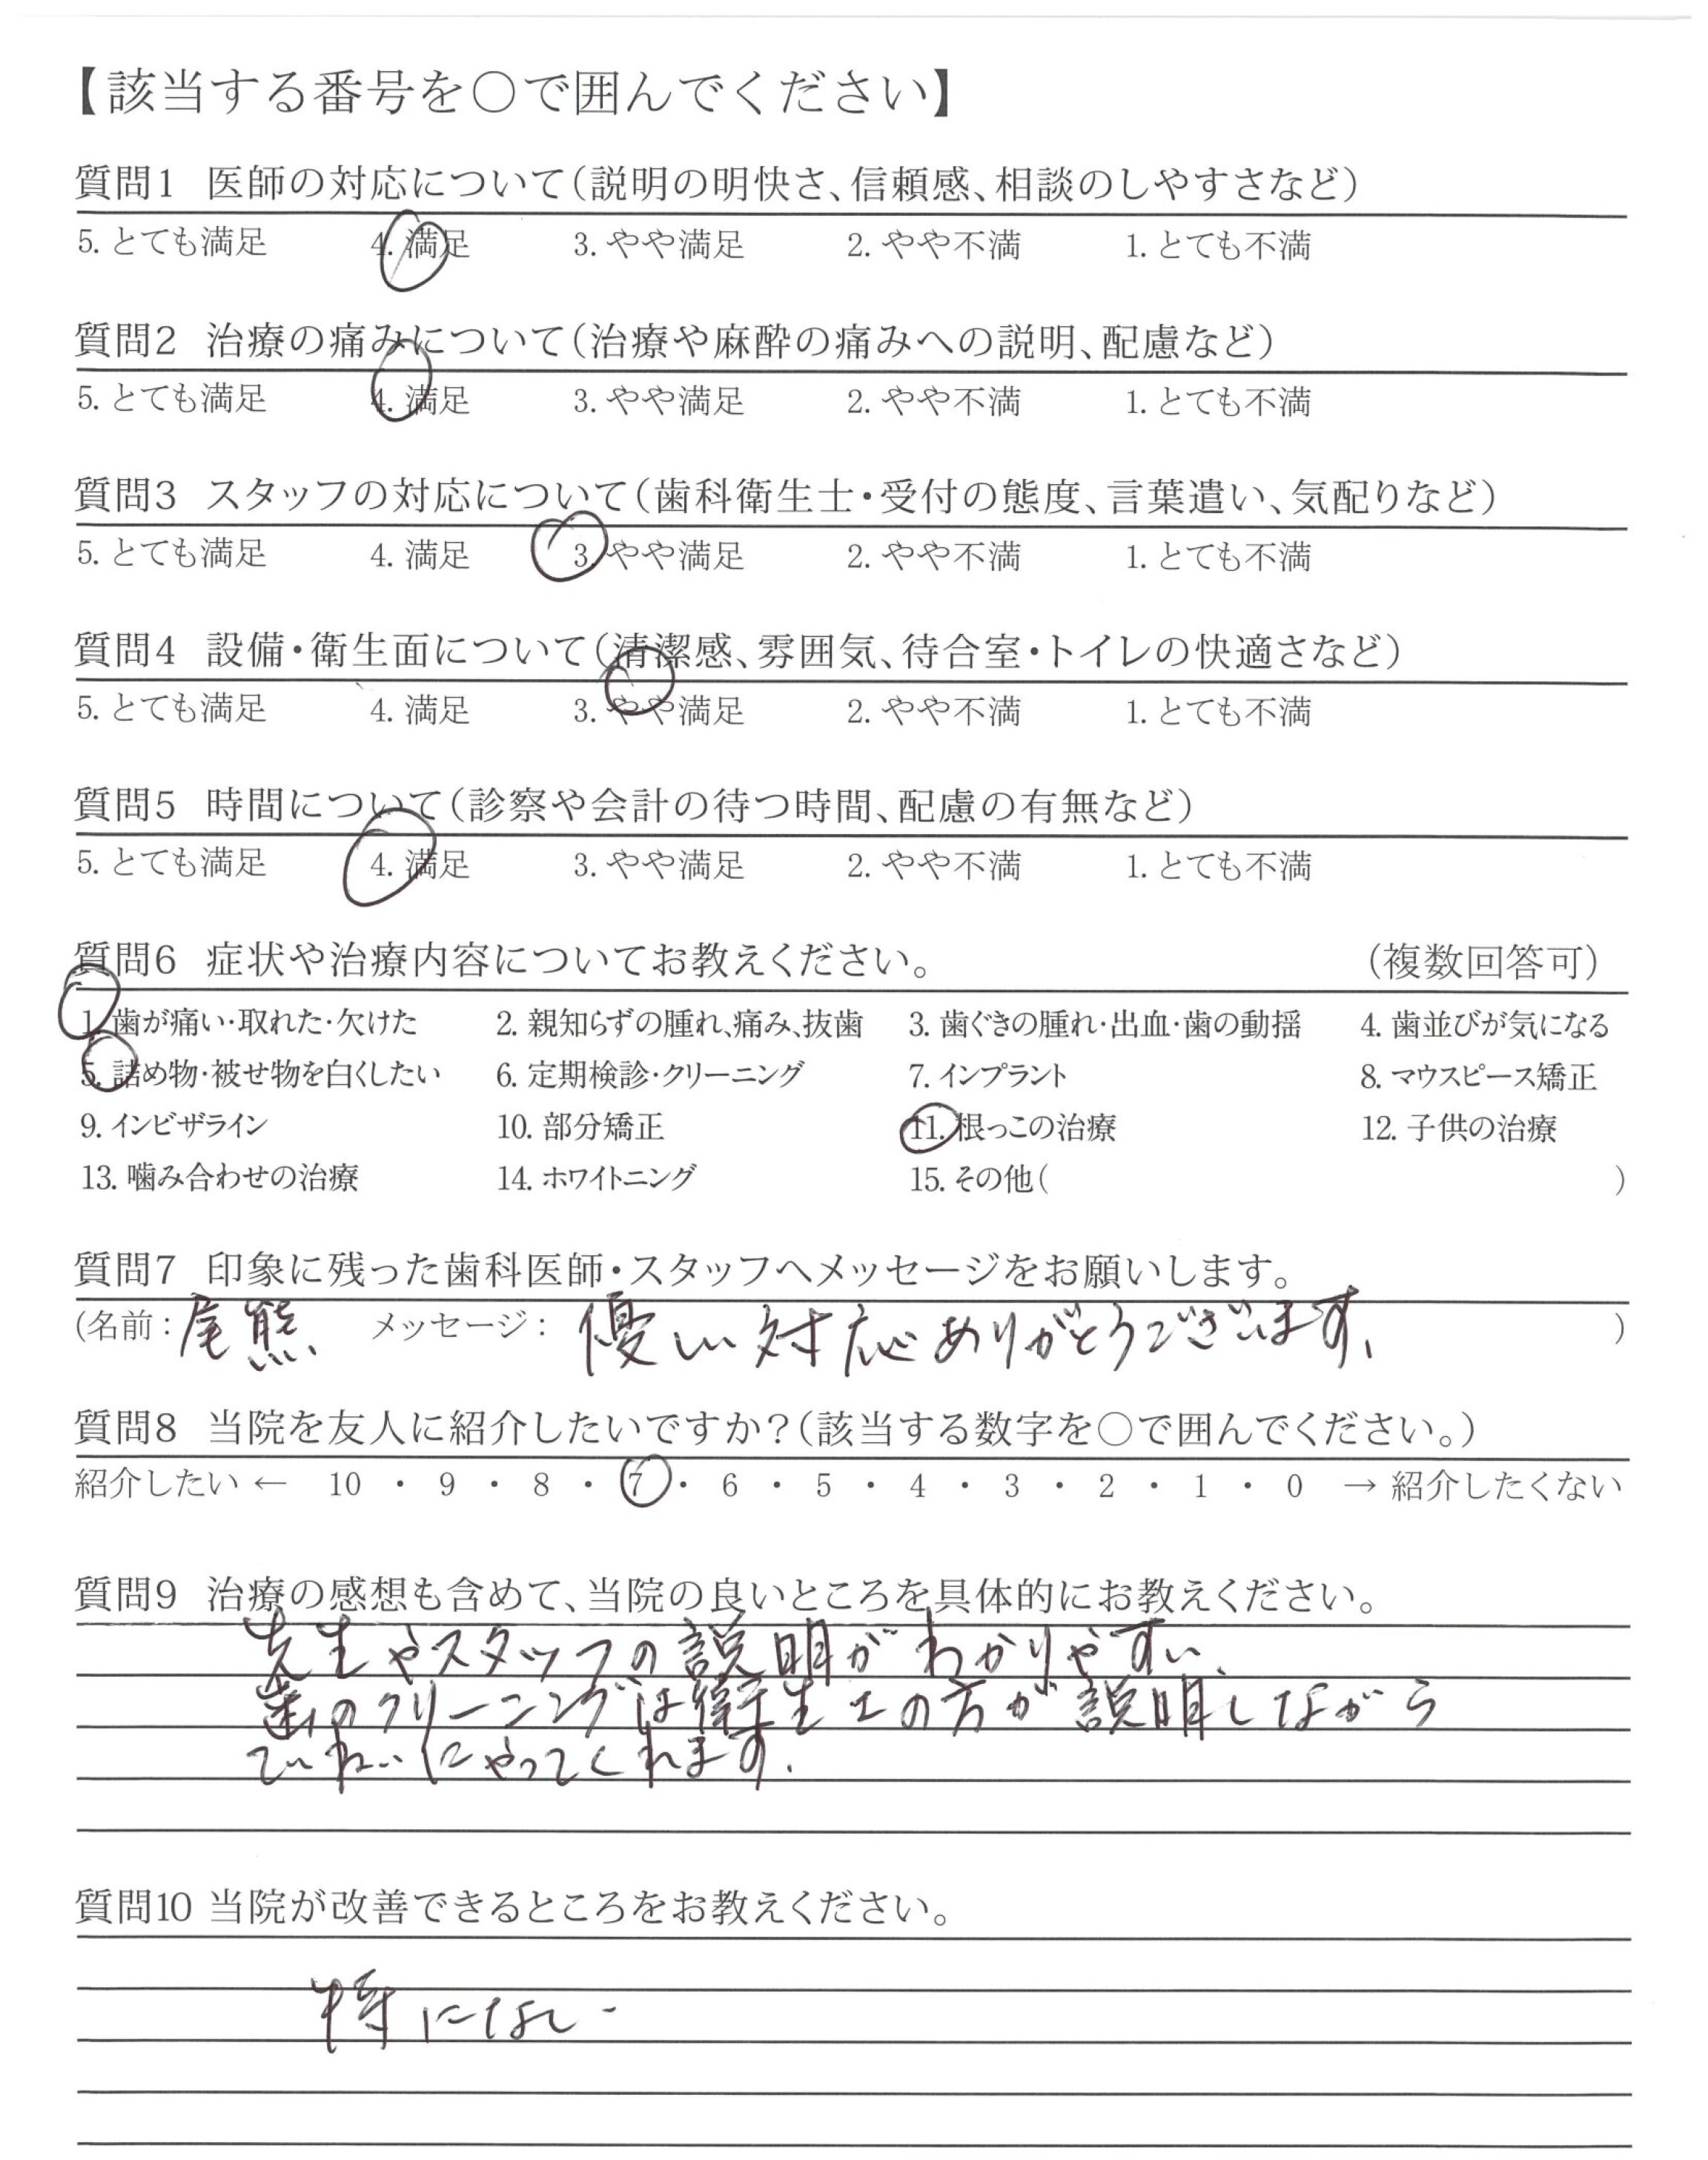 【該当する番号を○で囲んでください】
質問1 医師の対応について(説明の明快さ、信頼感、相談のしやすさなど)
5. とても満足 4. 満足 3. やや満足 2. やや不満 1. とても不満
質問2 治療の痛みについて(治療や麻酔の痛みへの説明、配慮など)
5. とても満足 4. 満足 3. やや満足 2. やや不満 1. とても不満
質問3 スタッフの対応について(歯科衛生士・受付の態度、言葉遣い、気配りなど)
5. とても満足 4. 満足 3. やや満足 2. やや不満 1. とても不満
質問4 設備・衛生面について(清潔感、雰囲気、待合室・トイレの快適さなど)
5. とても満足 4. 満足 3. やや満足 2. やや不満 1. とても不満
質問5 時間について(診察や会計の待つ時間、配慮の有無など)
5. とても満足 4. 満足 3. やや満足 2. やや不満 1. とても不満
質問6 症状や治療内容についてお教えください。 (複数回答可)
1. 歯が痛い・取れた・欠けた 2. 親知らずの腫れ、痛み、抜歯 3. 歯ぐきの腫れ・出血・歯の動揺 4. 歯並びが気になる
5. 詰め物・被せ物を白くしたい 6. 定期検診・クリーニング 7. インプラント 8. マウスピース矯正
9. インビザライン 10. 部分矯正 11. 根っこの治療 12. 子供の治療
13. 噛み合わせの治療 14. ホワイトニング 15. その他( )
質問7 印象に残った歯科医師・スタッフへメッセージをお願いします。
(名前: 尾熊、 メッセージ: 優しい対応ありがとうございます、 )
質問8 当院を友人に紹介したいですか?(該当する数字を○で囲んでください。)
紹介したい ← 10 ・ 9 ・ 8 ・ 7 ・ 6 ・ 5 ・ 4 ・ 3 ・ 2 ・ 1 ・ 0 → 紹介したくない
質問9 治療の感想も含めて、当院の良いところを具体的にお教えください。
先生やスタッフの説明がわかりやすい、
歯のクリーニングは衛生士の方が説明しながら
ていねいにやってくれます.
質問10 当院が改善できるところをお教えください。
特になし